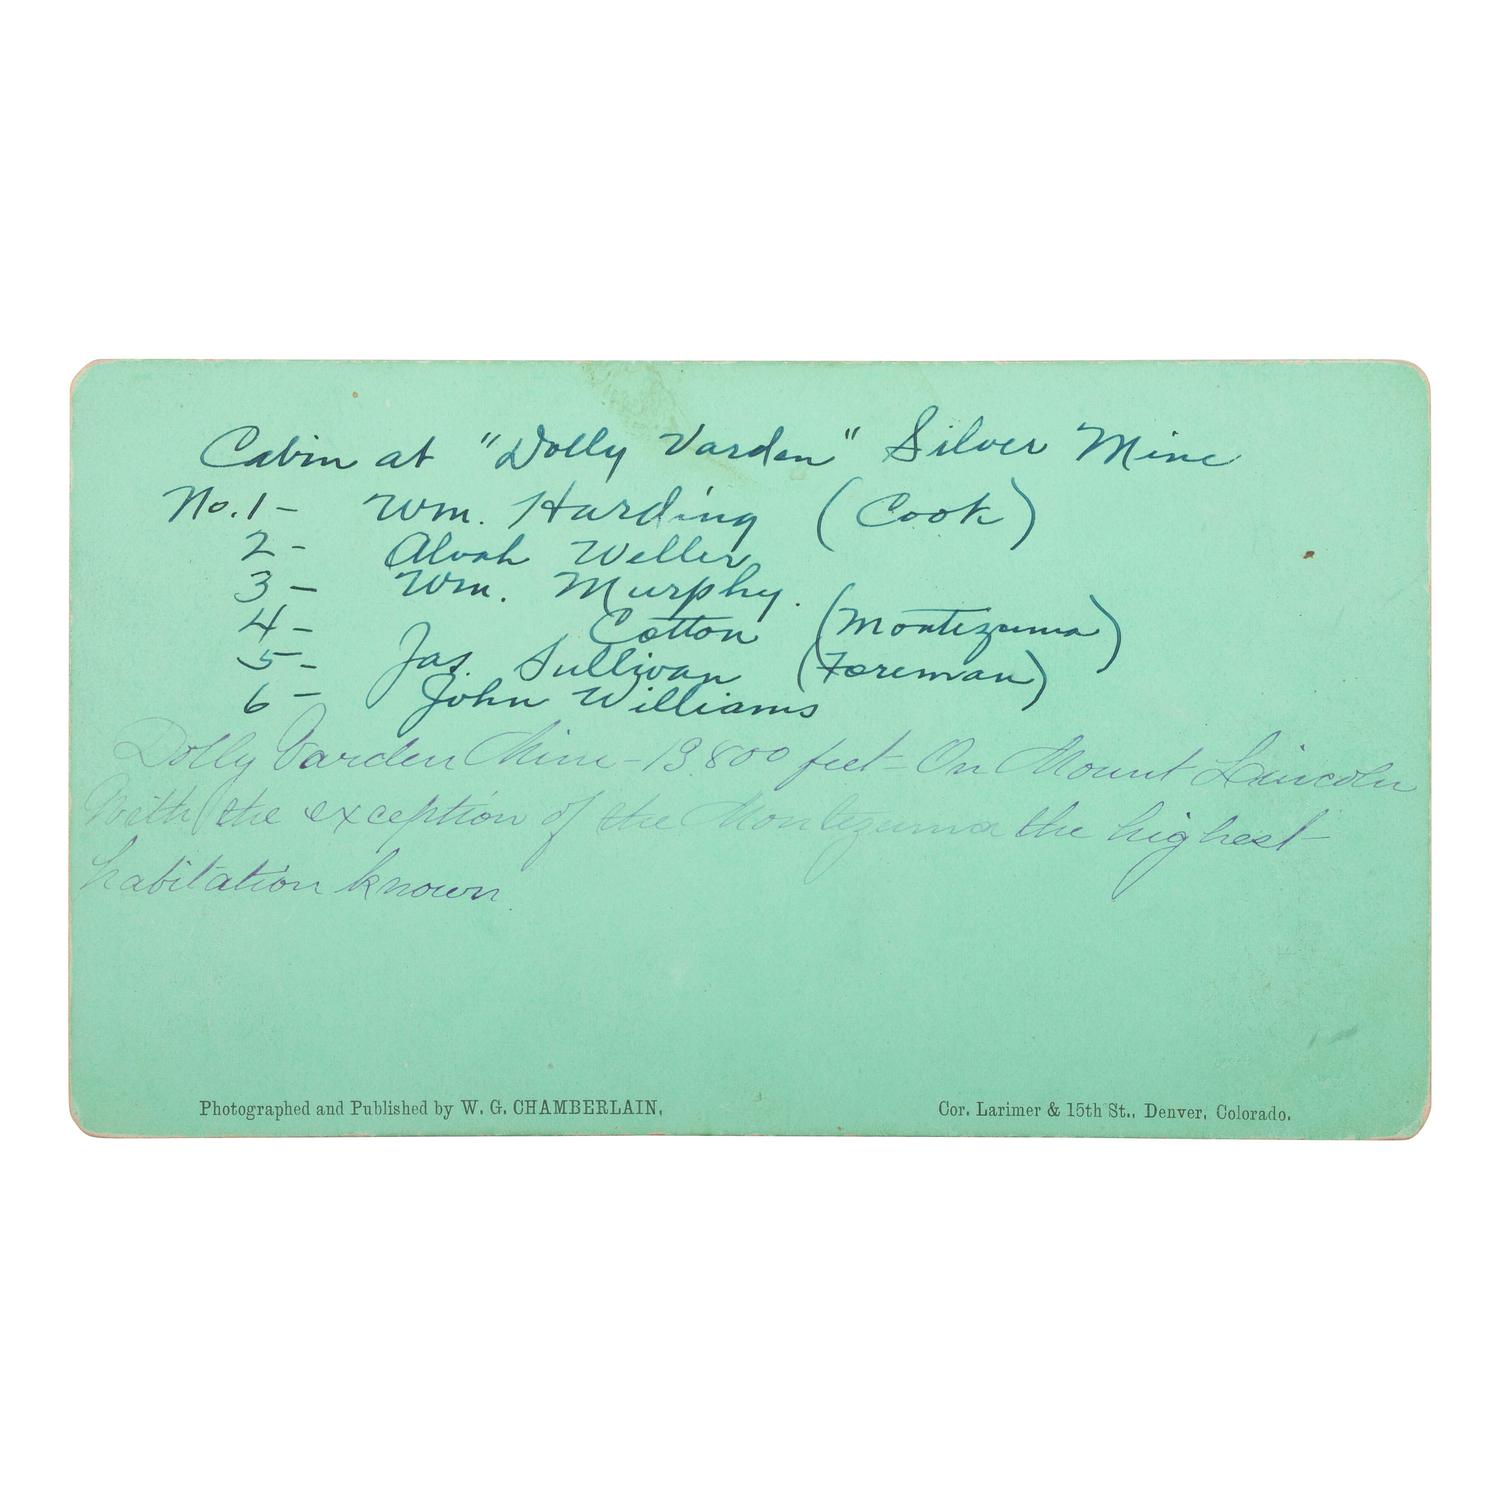 Cabin at "Dolly Varden" Silver Mine
No. 1 - Wm. Harding (Cook)
2 - Alvah Weller
3 - Wm. Murphy.
4 - Cotton (Montezuma)
5 - Jas. Sullivan (Foreman)
6 - John Williams
Dolly Varden Mine - 13800 feet - On Mount Lincoln
With the exception of the Montezuma the highest
habitation known.
Photographed and Published by W. G. CHAMBERLAIN, Cor. Larimer & 15th St., Denver, Colorado.